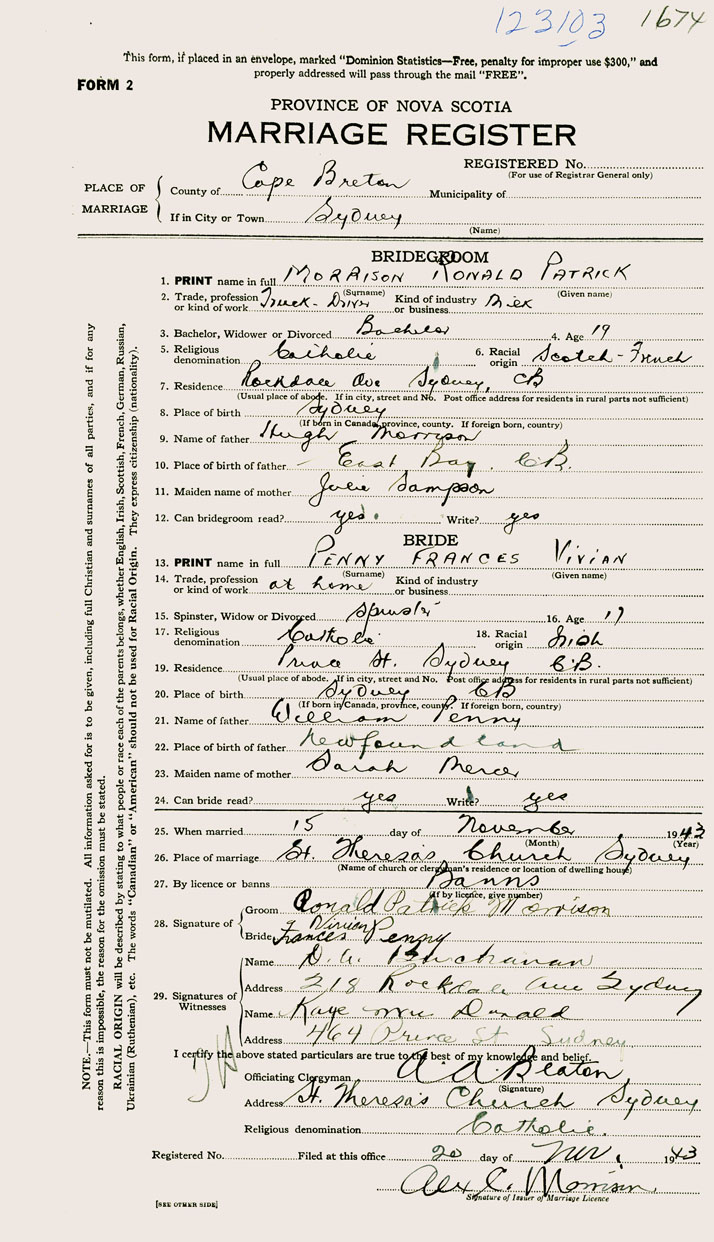 123103 1674
This form, if placed in an envelope, marked "Dominion Statistics—Free, penalty for improper use $300," and
properly addressed will pass through the mail "FREE".
FORM 2
PROVINCE OF NOVA SCOTIA
MARRIAGE REGISTER
REGISTERED No.
(For use of Registrar General only)
PLACE OF MARRIAGE
County of Cape Breton Municipality of
If in City or Town Sydney
(Name)
BRIDEGROOM
1. PRINT name in full MORRISON RONALD PATRICK
(Surname) (Given name)
2. Trade, profession or kind of work Truck-Driver Kind of industry or business
3. Bachelor, Widower or Divorced Bachelor 4. Age 19
5. Religious denomination Catholic 6. Racial origin Scotch-French
7. Residence Rockdale Ave Sydney, CB
(Usual place of abode. If in city, street and No. Post office address for residents in rural parts not sufficient)
8. Place of birth Sydney
(If born in Canada, province, county. If foreign born, country)
9. Name of father Hugh Morrison
10. Place of birth of father East Bay. C.B.
11. Maiden name of mother Julie Sampson
12. Can bridegroom read? yes. Write? yes
BRIDE
13. PRINT name in full PENNY FRANCES VIVIAN
(Surname) (Given name)
14. Trade, profession or kind of work at home Kind of industry or business
15. Spinster, Widow or Divorced Spinster 16. Age
17. Religious denomination Catholic 18. Racial origin Irish
19. Residence Prince St. Sydney C.B.
(Usual place of abode. If in city, street and No. Post office address for residents in rural parts not sufficient)
20. Place of birth Sydney CB
(If born in Canada, province, county. If foreign born, country)
21. Name of father William Penny
22. Place of birth of father Newfoundland
23. Maiden name of mother Sarah Mercer
24. Can bride read? yes Write? yes
25. When married 15 day of November 1943
(Month) (Year)
26. Place of marriage St. Theresa's Church Sydney
(Name of church or clergyman's residence or location of dwelling house)
27. By licence or banns Banns
(If by licence, give number)
28. Signature of
Groom Ronald Patrick Morrison
Vivian
Bride Frances Penny
29. Signatures of Witnesses
Name D. A. Buchanan
Address 218 Rockdale Ave Sydney
Name Kaye Mac Donald
Address 464 Prince St Sydney
I certify the above stated particulars are true to the best of my knowledge and belief.
Officiating Clergyman A. A. Beaton
(Signature)
Address St. Theresa's Church Sydney
Religious denomination Catholic.
Registered No. Filed at this office 20 day of Nov. 1943
Alex C. Morrison
Signature of Issuer of Marriage Licence
[SEE OTHER SIDE]
NOTE.—This form must not be mutilated. All information asked for is to be given, including full Christian and surnames of all parties, and if for any
reason this is impossible, the reason for the omission must be stated.
RACIAL ORIGIN will be described by stating to what people or race each of the parents belongs, whether English, Irish, Scottish, French, German, Russian,
Ukrainian (Ruthenian), etc. The words "Canadian" or "American" should not be used for Racial Origin. They express citizenship (nationality).